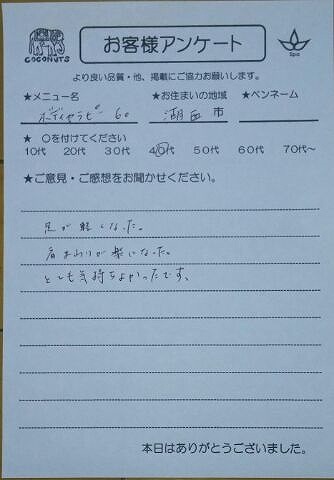 COCONUTS
お客様アンケート
Spa
より良い品質・他、掲載にご協力お願いします。
★メニュー名 ★お住まいの地域 ★ペンネーム
ボディセラピー 60 湖西市
★ 〇を付けてください
10代 20代 30代 40代 50代 60代 70代~
★ご意見・ご感想をお聞かせください。
足が軽くなった。
肩まわりが楽になった。
とても気持ちよかったです。
本日はありがとうございました。